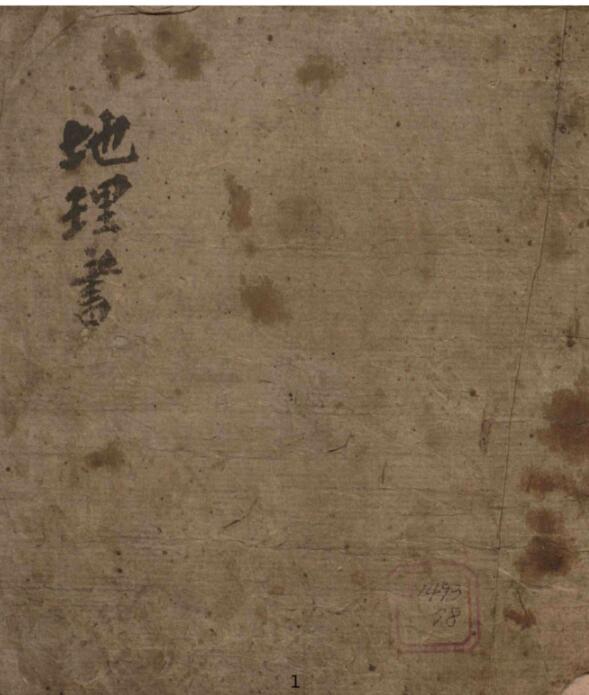 地理書
1493
58
1